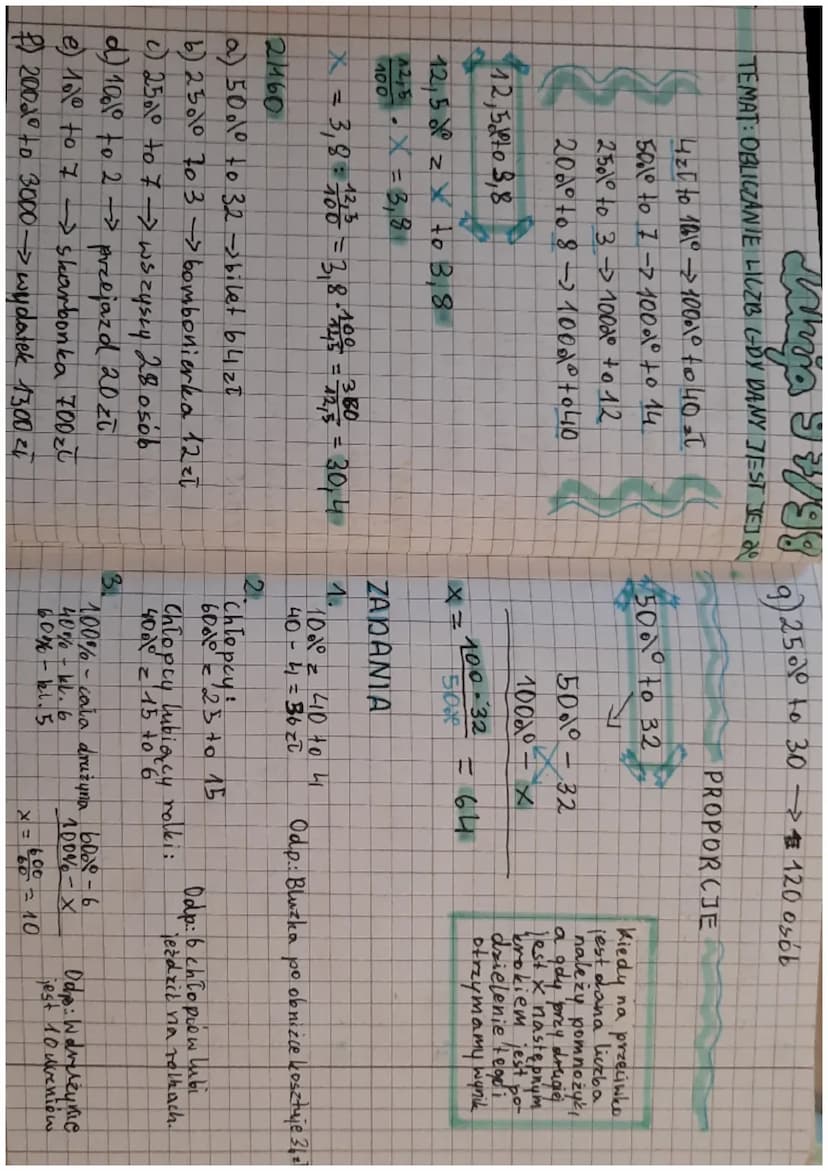 TEMAT: OBLICZANIE LICZB GDY DANY JEST JEJ %
4zł to 10% → 100% to 40 zł
50% to 7 → 100% to 14
25% to 3 → 100% to 12
20% to 8 → 100% to 40
12,5% to 3,8
12,5% z x to 3,8
12,5/100 · x = 3,8
x = 3,8 : 12,5/100 = 3,8 · 100/12,5 = 380/12,5 = 30,4
2/160
a) 50% to 32 → bilet 64 zł
b) 25% to 3 → bombonierka 12 zł
c) 25% to 7 → wszyscy 28 osób
d) 10% to 2 → przejazd 20 zł
e) 1% to 7 → skarbonka 700 zł
f) 200% to 3000 → wydatek 1500 zł
g) 25% to 30 → 120 osób
PROPORCJE
50% to 32
50% - 32
100% - x
x = 100·32/50% = 64
Kiedy na przeciwko
jest dana liczba
należy pomnożyć,
a gdy przy drugiej
jest x następnym
krokiem jest po-
dzielenie tego i
otrzymamy wynik
ZADANIA
1.
10% z 40 to 4
40 - 4 = 36 zł
Odp.: Bluzka po obniżce kosztuje 36 zł
2.
Chłopcy:
60% z 25 to 15
Chłopcy lubiący rolki:
40% z 15 to 6
Odp.: 6 chłopców lubi
jeździć na rolkach.
3.
100% - cała drużyna
40% - kl. 6
60% - kl. 5
60% - 6
100% - x
x = 600/60 = 10
Odp.: W drużynie
jest 10 uczniów